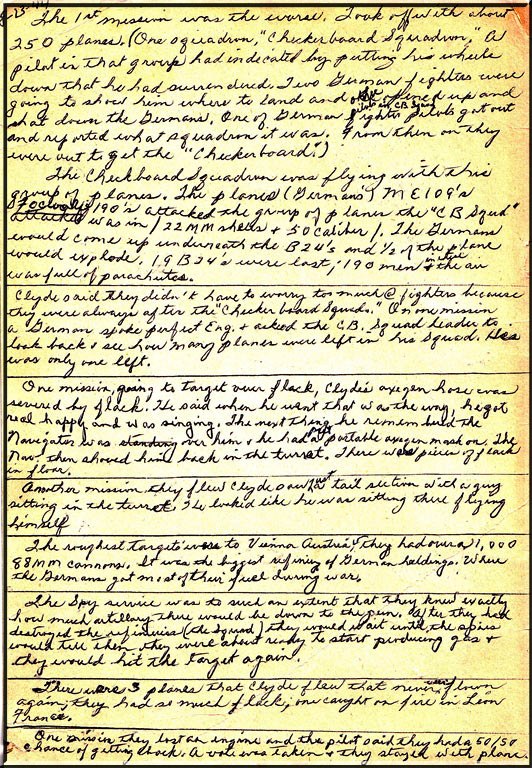 The 1st mission was the worse. Took off with about
250 planes. (One squadron, "Checkerboard Squadron," A
pilot in that group had indecated by putting his wheels
down that he had surrendered. Two German fighters were
going to show him where to land and other planes in C.B. Squad up and
shot down the Germans. One of German fighter pilots got out
and reported what squadron it was. From then on they
were out to get the "Checkerboard".)
The Checkboard Squadron was flying with this
group of planes. The planes (German's) ME109's
& 190's attacked the group of planes the "CB Squad"
was in / 22MM shells & 50 caliber /. The Germans
would come up underneath the B24's and 1/2 of the plane
would explode. 19 B24's were lost; 190 men in the air
was full of parachutes.
Clyde said they didn't have to worry too much @ fighters because
they were always after the "Checkerboard Squad." On one mission
a German spoke perfect Eng. & asked the C.B. Squad leader to
look back & see how many planes were left in his Squad. His
was only one left.
One mission, going to target over flack, Clydes axegen hose was
severed by flack. He said when he went that was the way, he got
real happy and was singing. The next thing he remembered the
Navigator was standing over him & he had a portable axegen mask on. The
Nav. then shoved him back in the turret. There was pieces of flack
in floor.
Another mission they flew Clyde saw just tail section with a guy
sitting in the turret. He looked like he was sitting there flying
himself.
The roughest targets were to Vienna Austria, they had over a 1,000
88MM cannons. It was the biggest refinery of German holdings. Where
the Germans got most of their fuel during war.
The Spy service was to such an extent that they knew exactly
how much artillary there would be down to the gun. After they had
destroyed the refineries (the Squad) they would wait until the spies
would tell them they were about ready to start producing gas &
they would hit the target again.
There were 3 planes that Clyde flew that never were flown
again; they had so much flack; one caught on fire in Leon
France.
One missin they lost an engine and the pilot said they had a 50/50
chance of getting back. A vote was taken & they stayed with plane